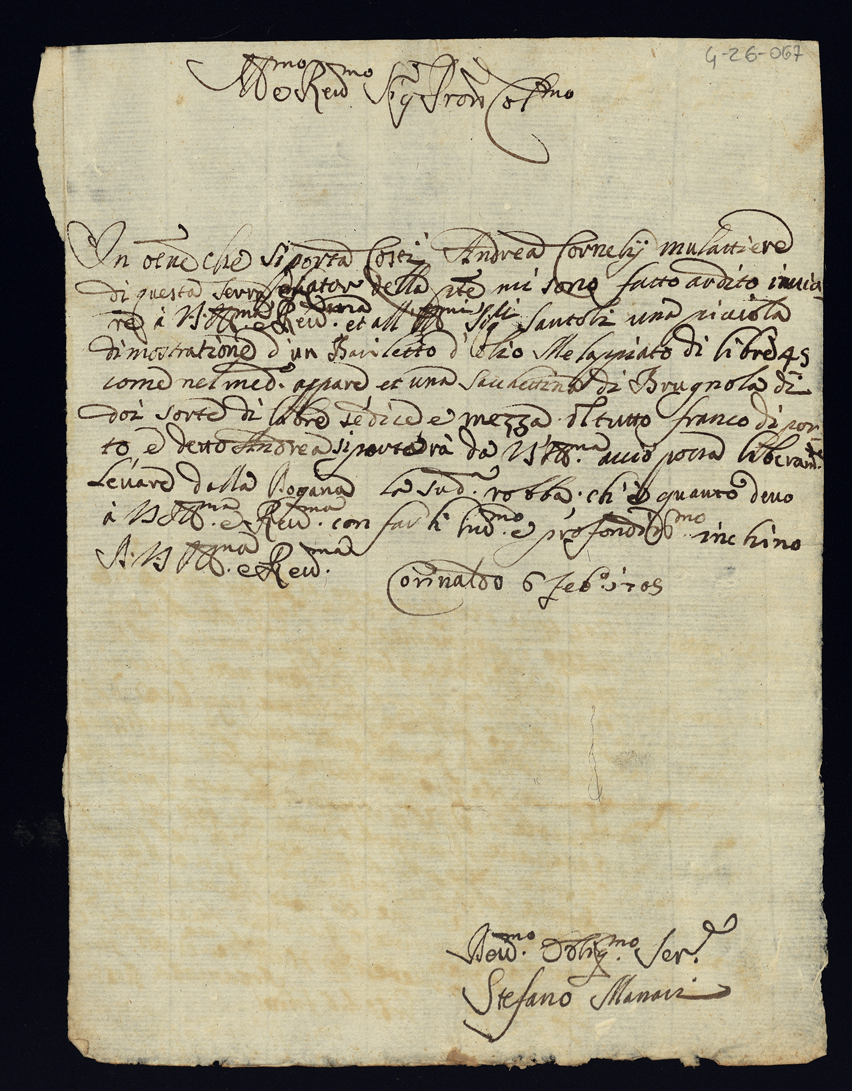 4-26-067
Ill.mo e Reud.mo Sig.r Pron Col.mo
In oc.ne che si porta Costì Andrea Cornelij mulattiere
di questa Terra della mi sono fatto ardito inuia
re à V.S. Ill.ma e Reud.ma et all Ill.mi Sig.li Santoli una piciola
dimostratione d'un Bariletto d'Olio Melappiato di libre 45
come nel med.o appare et una Sacchettina di Brugnola di
doi sorte di libre sedice e mezza il tutto franco di por
to e detto Andrea si porterà da V.S. Ill.ma acciò possa liberam.te
Leuare dalla Dogana la sud.a robba. ch'è quanto deuo
à V.S. Ill.ma e Reud.ma con farli hum.mo e profondis.mo inchino
D. V.S. Ill.ma e Reud.ma
Corinaldo 6 Feb.o 1705
Deu.mo Oblig.mo Ser.e
Stefano